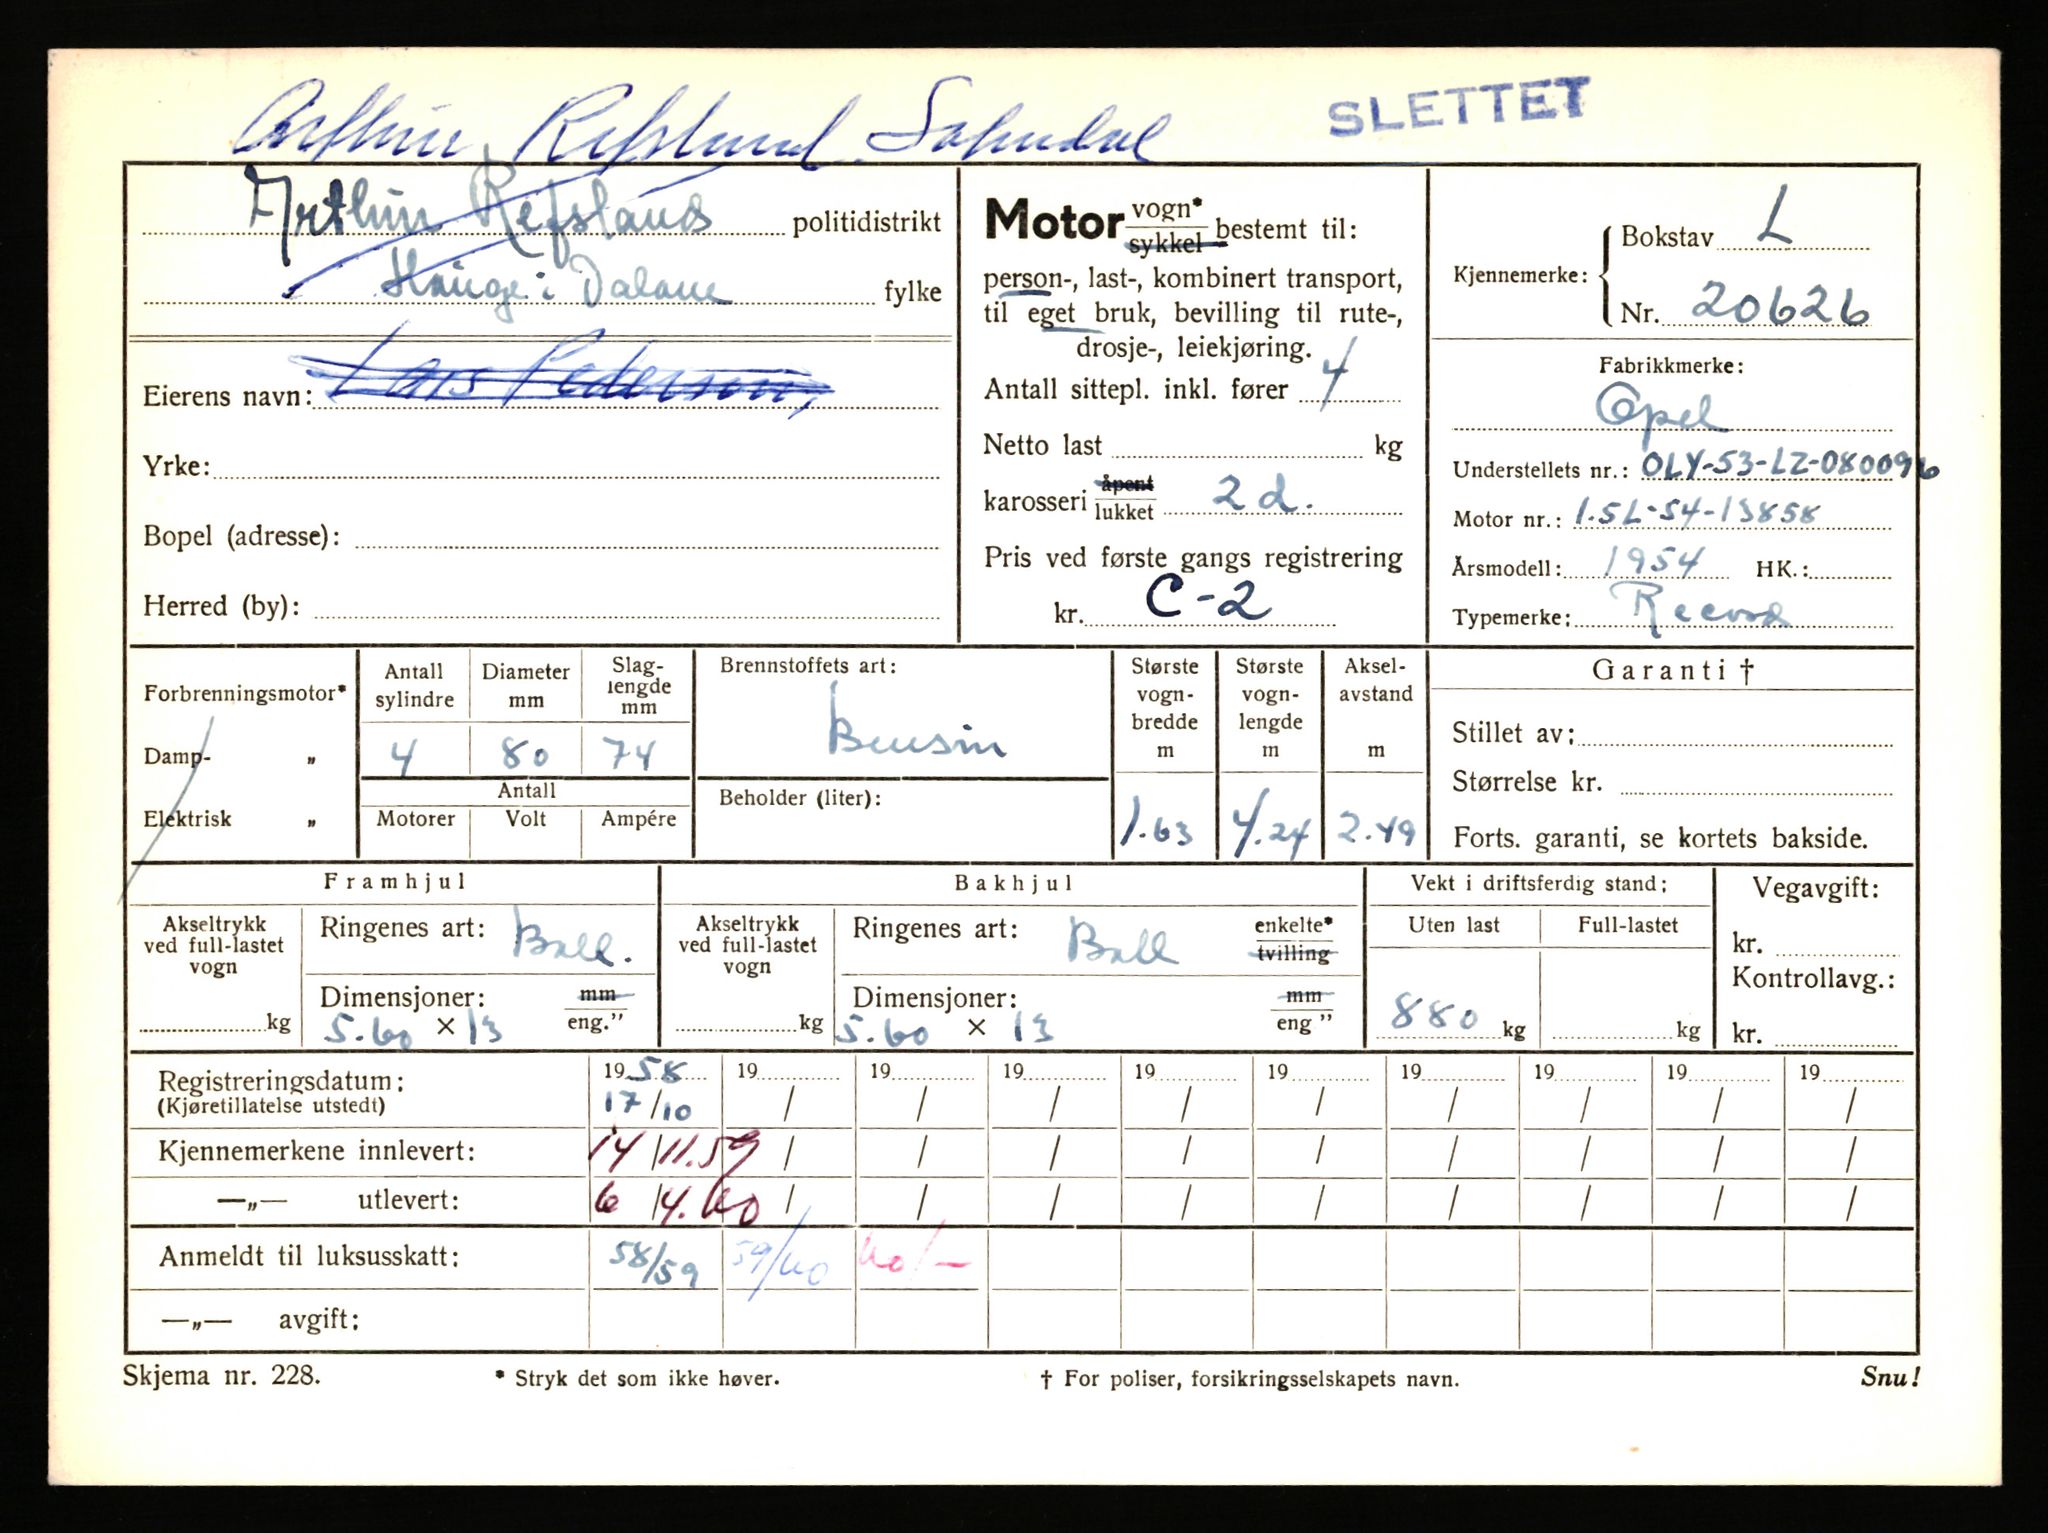 SLETTET
Arthur Refsland Sokndal
Arthur Refsland politidistrikt
Hauge i Dalane fylke
Eierens navn: Lars Pedersen,
Yrke:
Bopel (adresse):
Herred (by):
Motor vogn* sykkel bestemt til:
person-, last-, kombinert transport,
til eget bruk, bevilling til rute-,
drosje-, leiekjøring.
Antall sittepl. inkl. fører 4
Netto last kg
karosseri åpent lukket 2 d.
Pris ved første gangs registrering
kr. C-2
Kjennemerke: Bokstav L
Nr. 20626
Fabrikkmerke:
Opel
Understellets nr.: OLY-53-LZ-080096
Motor nr.: 1.5L-54-13858
Årsmodell: 1954 HK.:
Typemerke: Record
Forbrenningsmotor*
Damp- „
Elektrisk „
Antall sylindre
Diameter mm
Slag-lengde mm
4 80 74
Antall
Motorer Volt Ampére
Brennstoffets art:
Bensin
Beholder (liter):
Største vogn-bredde m
1.63
Største vogn-lengde m
4.24
Aksel-avstand m
2.49
Garanti †
Stillet av:
Størrelse kr.
Forts. garanti, se kortets bakside.
Framhjul
Akseltrykk ved full-lastet vogn
kg
Ringenes art: Ball.
Dimensjoner: mm eng."
5.60 × 13
Bakhjul
Akseltrykk ved full-lastet vogn
kg
Ringenes art: Ball enkelte* tvilling
Dimensjoner: mm eng "
5.60 × 13
Vekt i driftsferdig stand:
Uten last Full-lastet
880 kg kg
Vegavgift:
kr.
Kontrollavg.:
kr.
Registreringsdatum: 1958 19 19 19 19 19 19 19 19 19
(Kjøretillatelse utstedt) 17/10 / / / / / / / / /
Kjennemerkene innlevert: 14/11.59 / / / / / / / / /
—„— utlevert: 6/4.60 / / / / / / / / /
Anmeldt til luksusskatt: 58/59 59/60 60/—
—„— avgift:
Skjema nr. 228. * Stryk det som ikke høver. † For poliser, forsikringsselskapets navn. Snu!